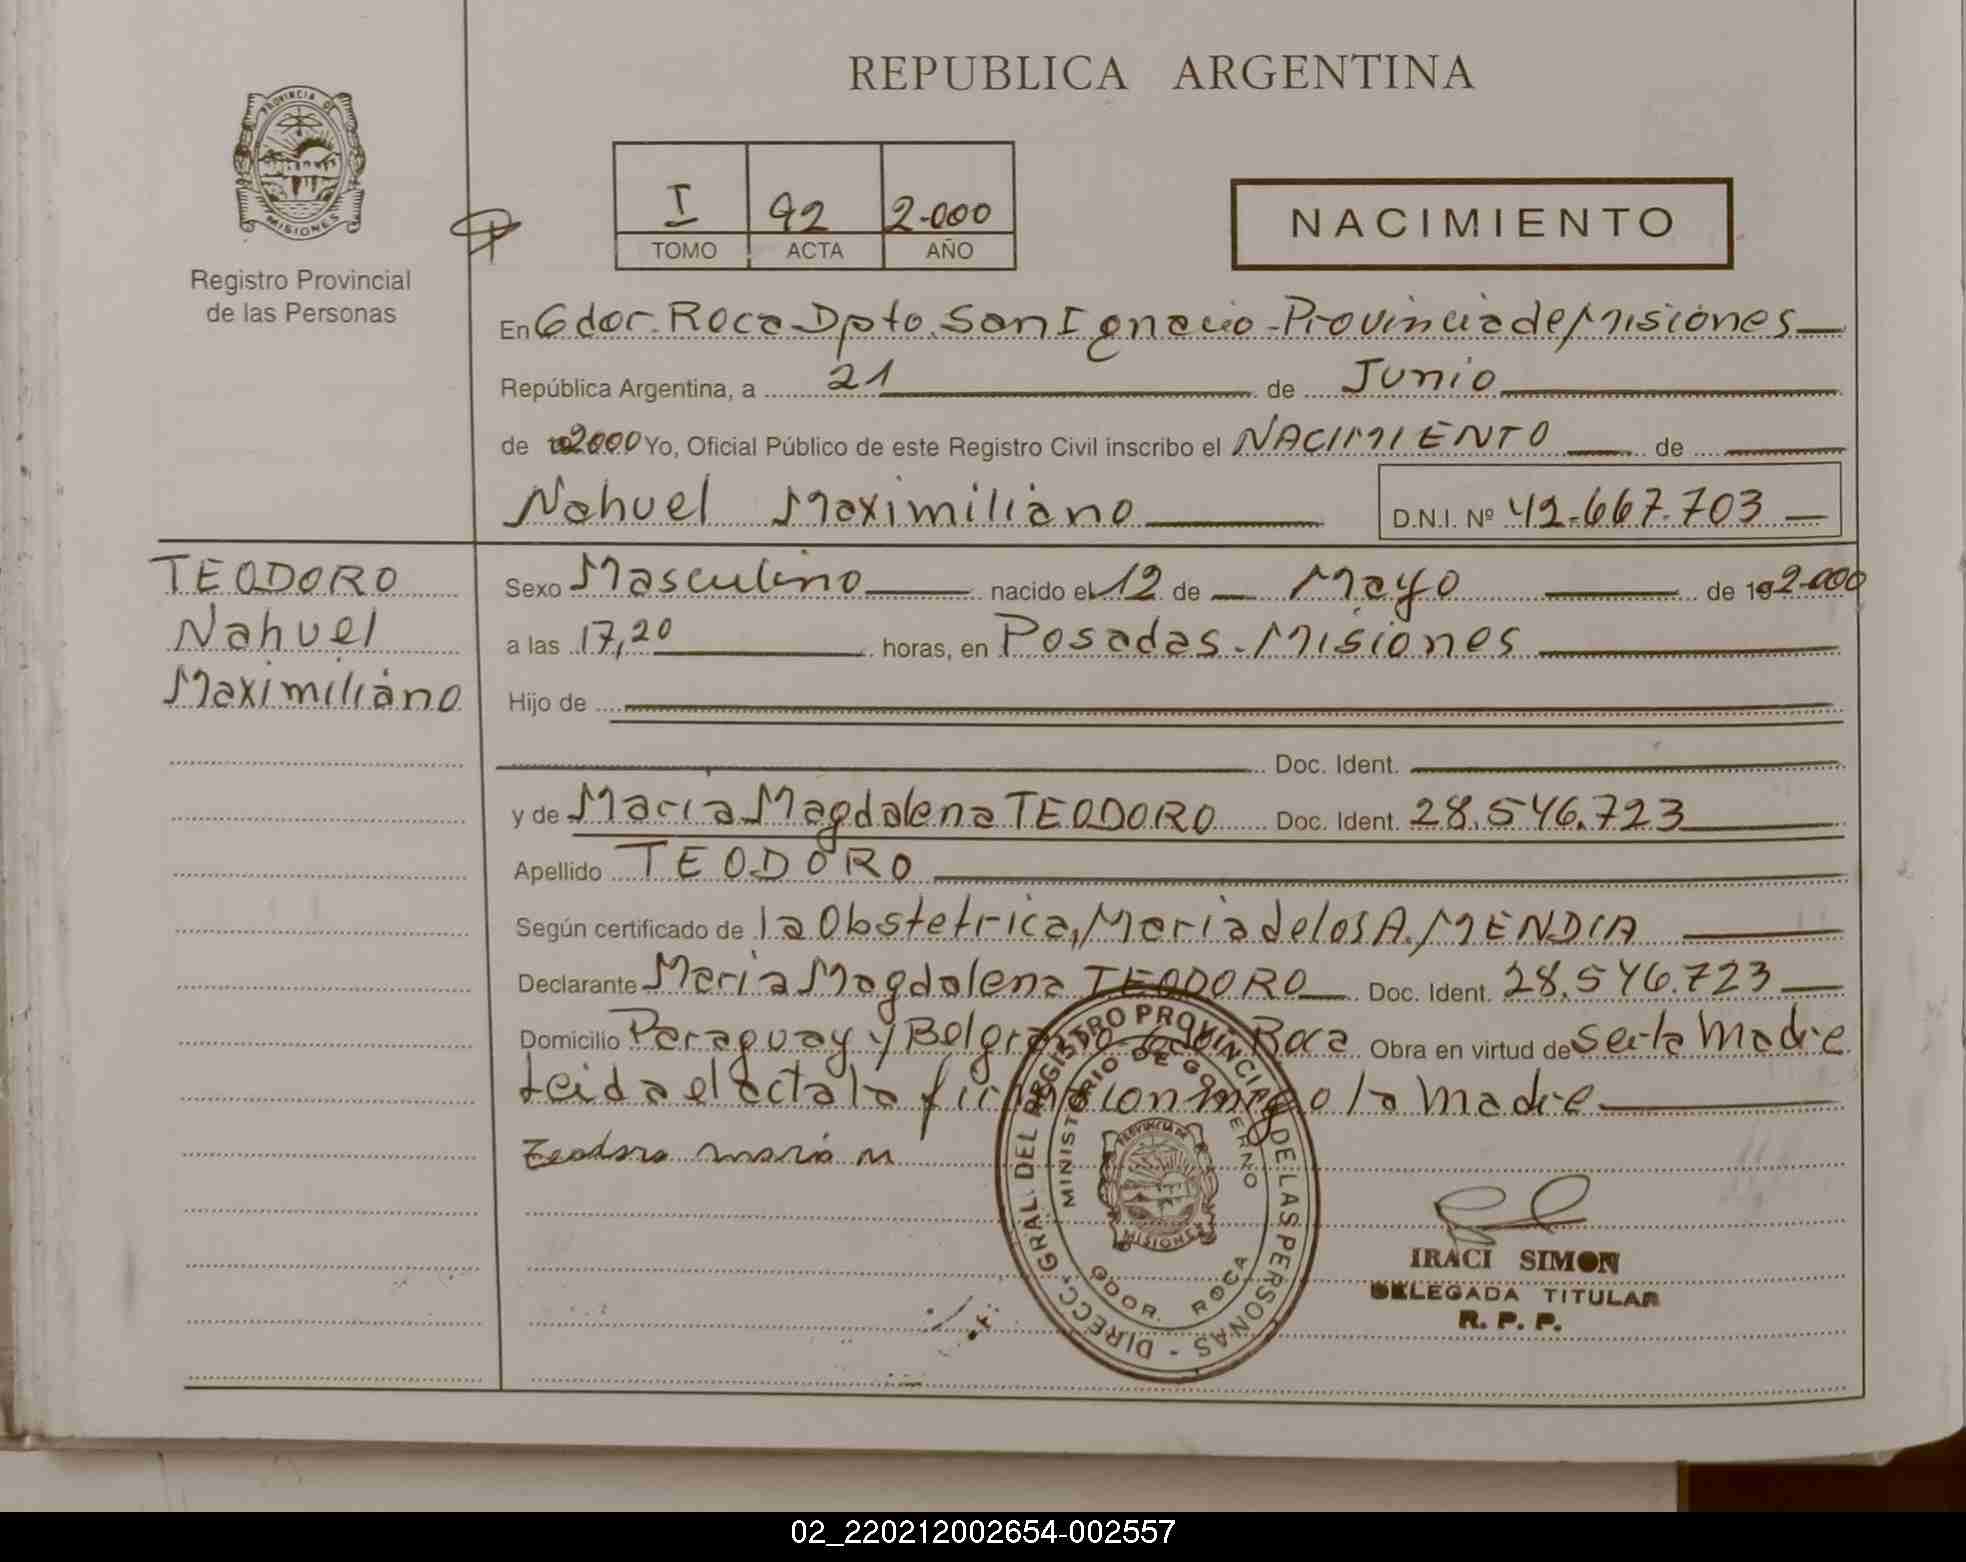 REPUBLICA ARGENTINA
PROVINCIA DE
MISIONES
Registro Provincial
de las Personas
I 92 2-000
TOMO ACTA AÑO
NACIMIENTO
En Gdor. Roca Dpto. San Ignacio - Provincia de Misiones
República Argentina, a 21 de Junio
de 2000 Yo, Oficial Público de este Registro Civil inscribo el NACIMIENTO de
Nahuel Maximiliano D.N.I. Nº 42.667.703
TEODORO
Nahuel
Maximiliano
Sexo Masculino nacido el 12 de Mayo de 19 2.000
a las 17,20 horas, en Posadas - Misiones
Hijo de
Doc. Ident.
y de Maria Magdalena TEODORO Doc. Ident. 28.546.723
Apellido TEODORO
Según certificado de la Obstetrica, Maria de los A. MENDIA
Declarante Maria Magdalena TEODORO Doc. Ident. 28.546.723
Domicilio Paraguay y Belgrano Gdor. Roca Obra en virtud de ser la Madre
Leida el acta la firman conmigo la Madre
Teodoro maria m
DIRECC. GRAL. DEL REGISTRO PROVINCIAL DE LAS PERSONAS -
MINISTERIO DE GOBIERNO
PROVINCIA DE
MISIONES
GDOR. ROCA
IRACI SIMON
DELEGADA TITULAR
R. P. P.
02_220212002654-002557